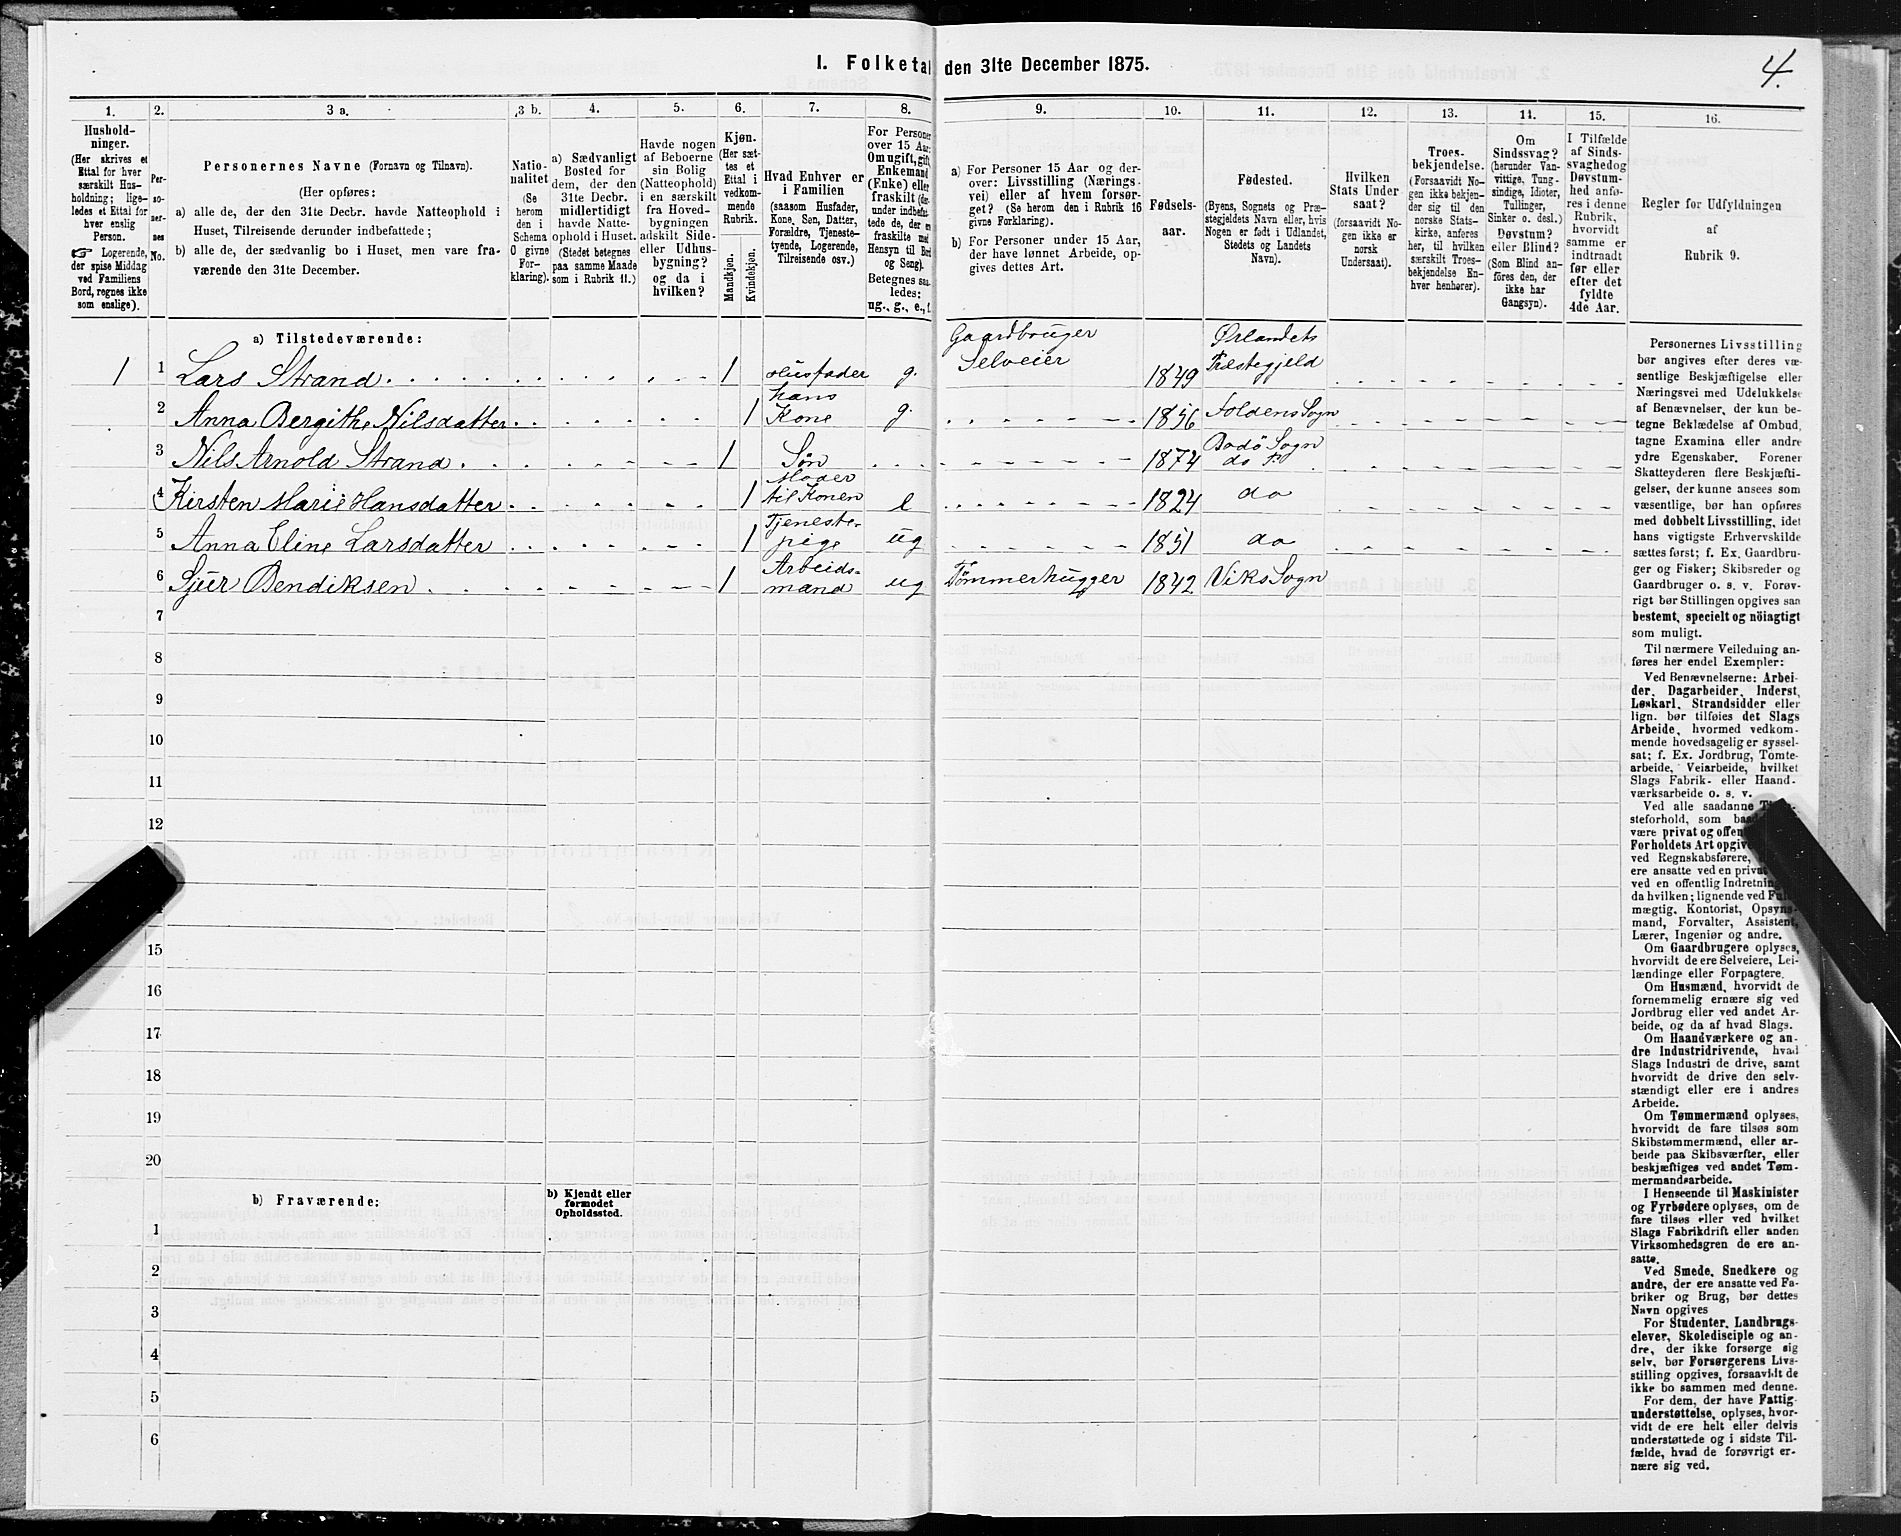 I. Folketal den 31te December 1875.
4.
1.
Hushold-
ninger.
(Her skrives et
Ettal for hver
særskilt Hus-
holdning; lige-
ledes et Ettal for
hver enslig
Person.
☞ Logerende,
der spise Middag
ved Familiens
Bord, regnes ikke
som enslige).
2.
Per-
so-
ner-
nes
No.
3 a.
Personernes Navne (Fornavn og Tilnavn).
(Her opføres:
a) alle de, der den 31te Decbr. havde Natteophold i
Huset, Tilreisende derunder indbefattede;
b) alle de, der sædvanlig bo i Huset, men vare fra-
værende den 31te December.
3 b.
Natio-
nalitet
(Se
herom
den i
Schema
O givne
For-
klaring).
4.
a) Sædvanligt
Bosted for
dem, der den
31te Decbr.
midlertidigt
havde Natte-
ophold i Huset.
(Stedet betegnes
paa samme Maade
som i Rubrik 11.)
5.
Havde nogen
af Beboerne
sin Bolig
(Natteophold)
i en særskilt
fra Hoved-
bygningen
adskilt Side-
eller Udhus-
bygning?
og da i
hvilken?
6.
Kjøn.
(Her sæt-
tes et
Ettal i
vedkom-
mende
Rubrik.
Mandkjøn.
Kvindekjøn.
7.
Hvad Enhver er
i Familien
(saasom Husfader,
Kone, Søn, Datter,
Forældre, Tjeneste-
tyende, Logerende,
Tilreisende osv.)
8.
For Personer
over 15 Aar:
Om ugift, gift,
Enkemand
(Enke) eller
fraskilt (der-
under indbefat-
tede de, der er
fraskilte med
Hensyn til Bord
og Seng).
Betegnes saa-
ledes:
ug., g., e., f.
9.
a) For Personer 15 Aar og der-
over: Livsstilling (Nærings-
vei) eller af hvem forsør-
get? (Se herom den i Rubrik 16
givne Forklaring).
b) For Personer under 15 Aar,
der have lønnet Arbeide, op-
gives dettes Art.
10.
Fødsels-
aar.
11.
Fødested.
(Byens, Sognets og Præ-
stegjeldets Navn eller, hvis
Nogen er født i Udlandet,
Stedets og Landets
Navn).
12.
Hvilken
Stats Under
saat?
(forsaavidt No-
gen ikke er
norsk
Undersaat).
13.
Troes-
bekjendelse.
(Forsaavidt No-
gen ikke bekjen-
der sig til den
norske Stats-
kirke, anføres
her, til hvilken
særskilt Troes-
bekjendelse En-
hver henhører).
14.
Om
Sindssvag?
(herunder Van-
vittige, Tung-
sindige, Idioter,
Tullinger,
Sinker o. desl.)
Døvstum?
eller Blind?
(Som Blind an-
føres den, der
ikke har
Gangsyn).
15.
I Tilfælde
af Sinds-
svaghed og
Døvstum-
hed anfø-
res i denne
Rubrik,
hvorvidt
samme er
indtraadt
før eller
efter det
fyldte
4de Aar.
16.
Regler for Udfyldningen
af
Rubrik 9.
a) Tilstedeværende:
1 1 Lars Strand 1 Husfader g. Gaardbruger Selveier 1849 Ørlandets Præstegjeld
2 Anna Bergithe Nilsdatter 1 hans Kone g. 1856 Foldens Sogn
3 Nils Arnold Strand 1 Søn 1874 Bodö Sogn do P
4 Kirsten Marie Hansdatter 1 Moder til Konen e 1824 do
5 Anna Eline Larsdatter 1 Tjeneste-pige ug 1851 do
6 Sjur Bendiksen 1 Arbeids-mand ug Tømmerhugger 1842 Viks Sogn
7
8
9
10
11
12
15
16
17
18
19
20
b) Fraværende:
b) Kjendt eller
formodet
Opholdssted.
1
2
3
4
5
6
Personernes Livsstilling
bør angives efter deres væ-
sentlige Beskjæftigelse eller
Næringsvei med Udelukkelse
af Benævnelser, der kun be-
tegne Beklædelse af Ombud,
tagne Examina eller andre
ydre Egenskaber. Forener
Skatteyderen flere Beskjæfti-
gelser, der kunne ansees som
væsentlige, bør han opføres
med dobbelt Livsstilling, idet
hans vigtigste Erhvervskilde
sættes først; f. Ex. Gaardbru-
ger og Fisker; Skibsreder og
Gaardbruger o. s. v. Forøv-
rigt bør Stillingen opgives saa
bestemt, specielt og nöiagtigt
som muligt.
Til nærmere Veiledning an-
føres her endel Exempler:
Ved Benævnelserne: Arbei-
der, Dagarbeider, Inderst,
Løskarl, Strandsidder eller
lign. bør tilføies det Slags
Arbeide, hvormed vedkom-
mende hovedsagelig er syssel-
sat; f. Ex. Jordbrug, Tomte-
arbeide, Veiarbeide, hvilket
Slags Fabrik- eller Haand-
værksarbeide o. s. v.
Ved alle saadanne
steforhold, som
være privat og
Forholdets Art
ved Regnskabsførere,
ere ansatte ved en
ved en offentlig Indretning
da hvilken; lignende ved
mægtig, Kontorist, Opsyns-
mand, Forvalter, Assistent,
Lærer, Ingeniør og andre.
Om Gaardbrugere oplyses,
hvorvidt de ere Selveiere, Lei-
lændinge eller Forpagtere.
Om Husmænd, hvorvidt de
fornemmelig ernære sig ved
Jordbrug eller ved andet Ar-
beide, og da af hvad Slags.
Om Haandværkere og an-
dre Industridrivende, hvad
Slags Industri de drive, samt
hvorvidt de drive den selv-
stændigt eller ere i andres
Arbeide.
Om Tømmermænd oplyses,
hvorvidt de fare tilsøs som
Skibstømmermænd, eller ar-
beide paa Skibsværfter, eller
beskjæftiges ved andet Tøm-
mermandsarbeide.
I Henseende til Maskinister
og Fyrbødere oplyses, om de
fare tilsøs eller ved hvilket
Slags Fabrikdrift eller anden
Virksomhedsgren de ere an-
satte.
Ved Smede, Snedkere og
andre, der ere ansatte ved Fa-
briker og Brug, bør dettes
Navn opgives
For Studenter, Landbrugs-
elever, Skoledisciple og an-
dre, der ikke forsørge sig
selv, bør Forsørgerens Livs-
stilling opgives, forsaavidt de
ikke bo sammen med denne.
For dem, der have Fattig-
understøttelse, oplyses, hvor-
vidt de ere helt eller delvis
understøttede og i sidste Til-
fælde, hvad de forøvrigt er-
nære sig ved.